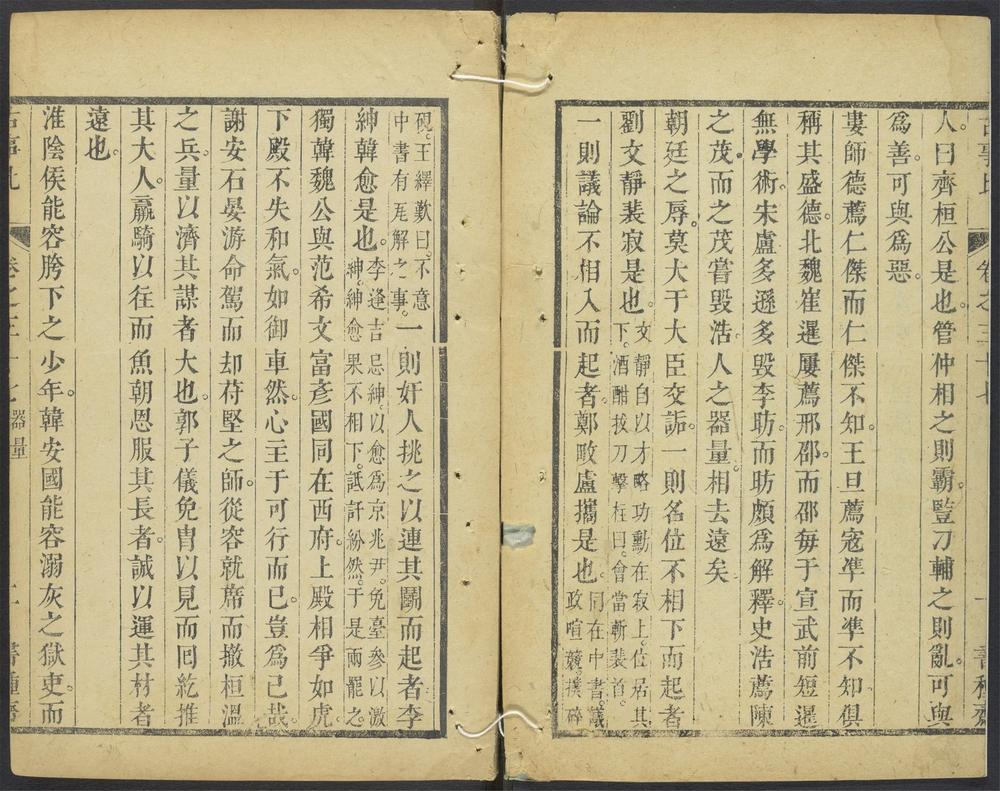 人。曰齊桓公是也。管仲相之則霸。豎刀輔之則亂。可與
為善。可與為惡。
婁師德薦仁傑而仁傑不知。王旦薦寇凖而凖不知。俱
稱其盛德。北魏崔暹屢薦邢邵。而邵每于宣武前短暹
無學術。宋盧多遜多毀李昉。而昉頗為解釋。史浩薦陳
之茂。而之茂嘗毀浩。人之器量。相去遠矣
朝廷之辱。莫大于大臣交詬。一則名位不相下而起者
劉文靜裴寂是也。文靜自以才略功勳在寂上。位居其下。酒酣拔刀擊柱曰。會當斬裴首。
一則議論不相入而起者。鄭畋盧攜是也。同在中書。議政喧競。撲碎
硯。王繹歎曰。不意中書有瓦解之事。一則奸人挑之以連其鬭而起者李
紳韓愈是也。李逢吉忌紳。以愈為京兆尹。免臺參以激紳。紳愈果不相下。詆訐紛然。于是兩罷之。
獨韓魏公與范希文富彥國同在西府。上殿相爭如虎
下殿不失和氣。如御車然。心主于可行而已。豈為己哉。
謝安石晏游命駕而却苻堅之師。從容就席而撤桓溫
之兵。量以濟其謀者大也。郭子儀免冑以見而回紇推
其大人。羸騎以往而魚朝恩服其長者。誠以運其材者
遠也。
淮陰侯能容胯下之少年。韓安國能容溺灰之獄吏。而
卷之三十七
器量